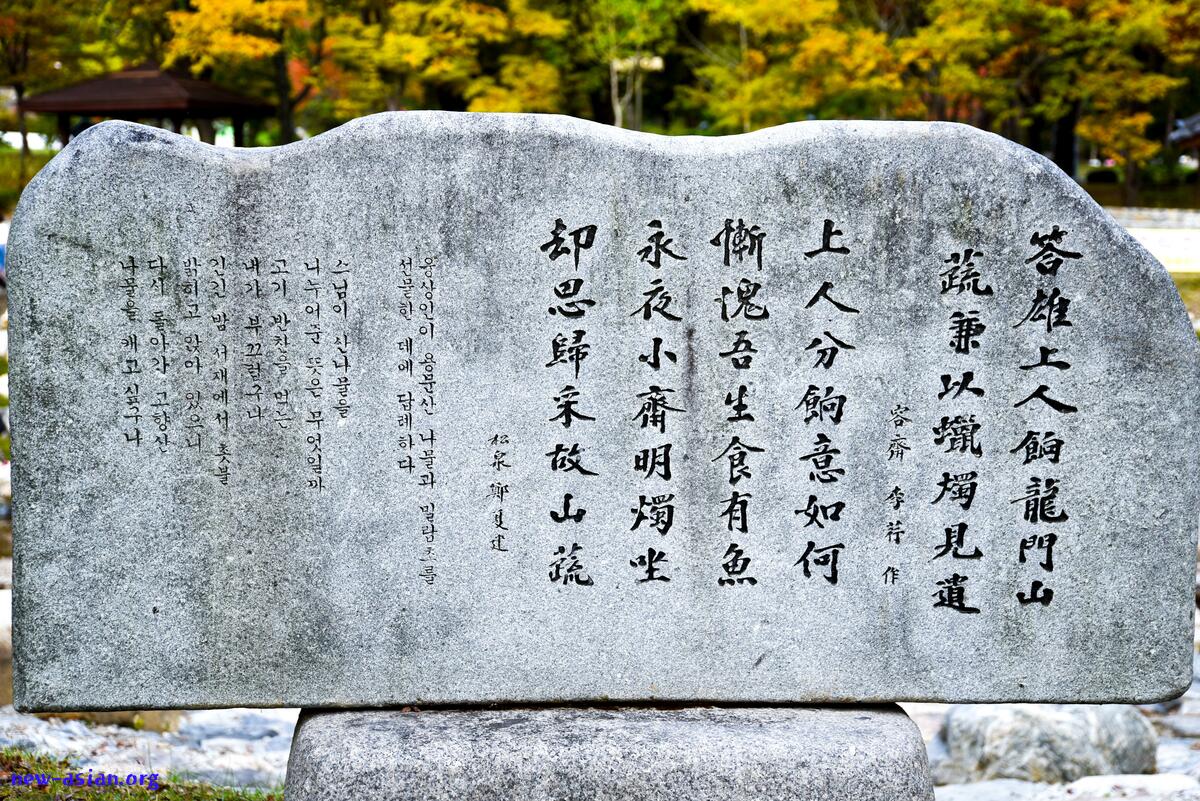 答雄上人餉龍門山
蔬兼以蠟燭見遺
容齋 李荇 作
上人分餉意如何
慚愧吾生食有魚
永夜小齋明燭坐
却思歸采故山蔬
松泉 鄭夏建
웅상인이 용문산 나물과 밀랍초를
선물한 데에 답례하다
스님이 산나물을
나누어준 뜻은 무엇일까
고기 반찬을 먹는
내가 부끄럽구나
긴긴 밤 서재에서 촛불
밝히고 앉아 있으니
다시 돌아가 고향산
나물을 캐고 싶구나
new-asian.org